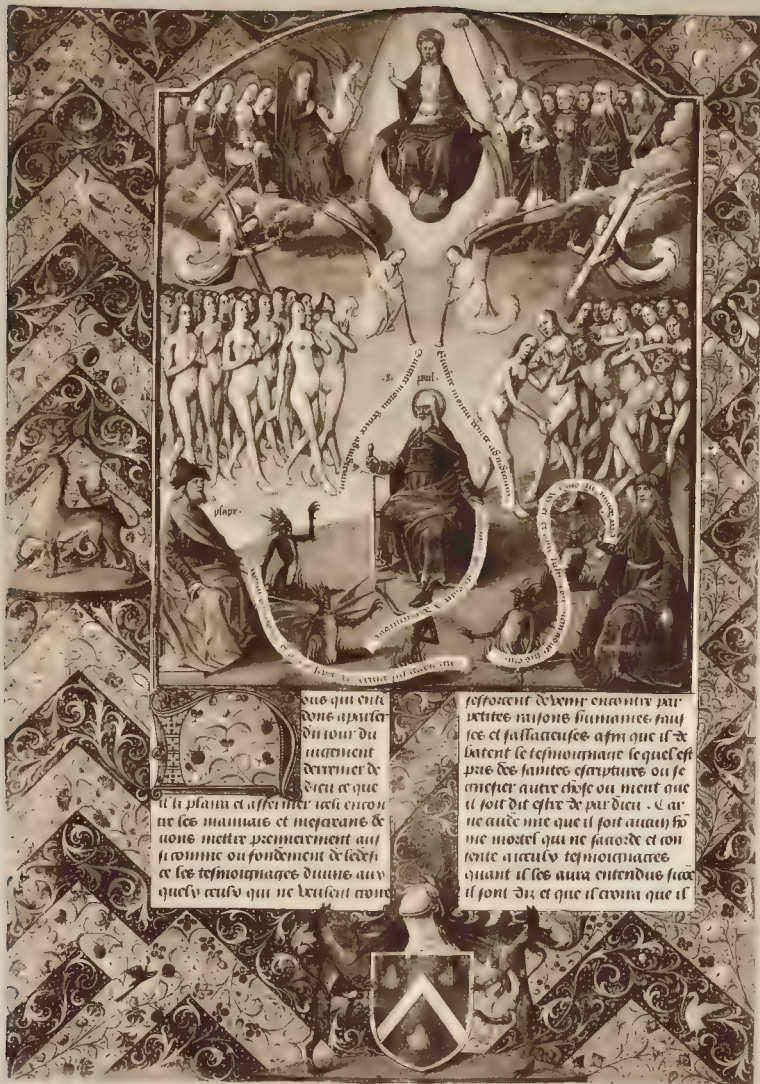 ·S· paul·
psape·
ous qui enten
dons a parler
du iour du
iugement
derrenier de
dieu ce que
il li plaira et affermer icelli encon
tre les mauuais et mescreans de
uons mettre premierement aus
si comme ou fondement de ledefi
ce les tesmoignages diuins aux
quelx ceulx qui ne veulent croire
sefforcent de venir encontre par
petites raisons humaines faus
ses et fallacieuses afin que il de
batent le tesmoignage lequel est
pris des saintes escriptures ou se
gnefier autre chose ou ment que
il soit dit estre de par dieu · Car
ne cuide mie que il soit aucun ho
me mortel qui ne sacorde et con
sente a iceulx tesmoignages
quant il les aura entendus sicõe
il sont diz et que il croira que il